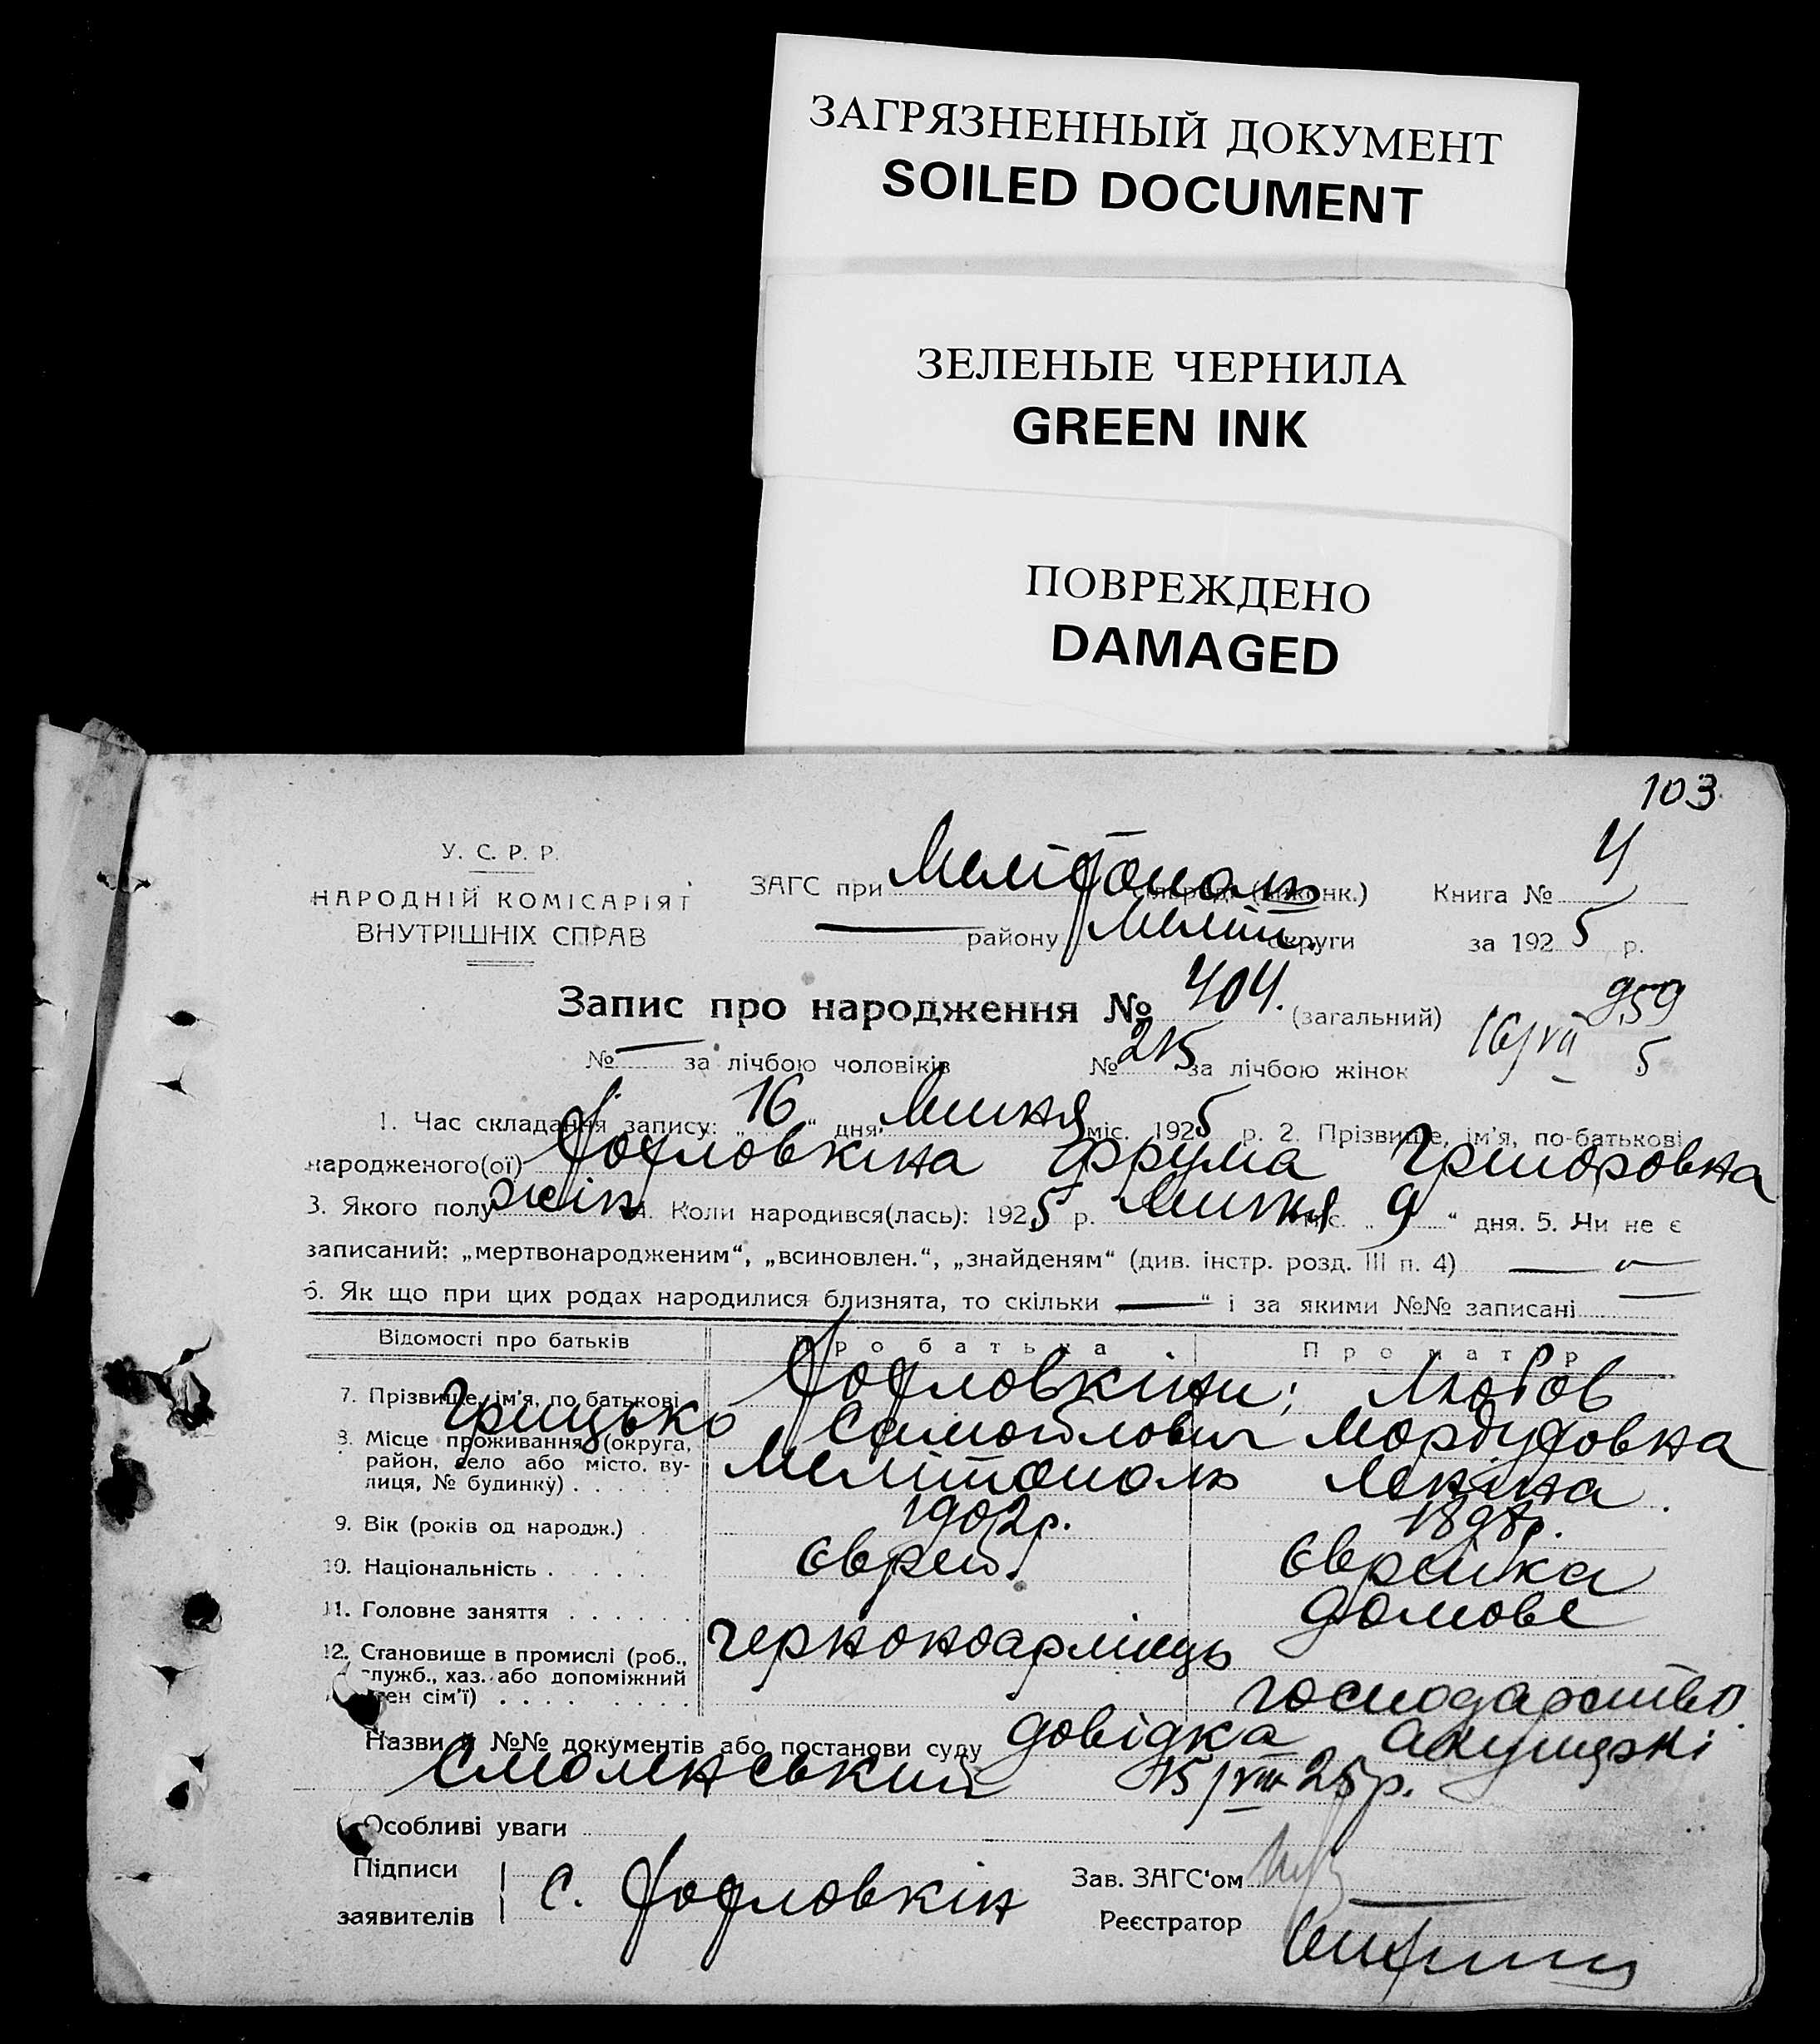 ЗАГРЯЗНЕННЫЙ ДОКУМЕНТ
SOILED DOCUMENT
ЗЕЛЕНЫЕ ЧЕРНИЛА
GREEN INK
ПОВРЕЖДЕНО
DAMAGED
103
У. С. Р. Р.
НАРОДНІЙ КОМІСАРІЯТ
ВНУТРІШНІХ СПРАВ
ЗАГС при Мелітополь Книга № 4
району Меліт. округи за 1925 р.
Запис про народження № 404. (загальний) 959
№ — за лічбою чоловіків № 215 за лічбою жінок 16/VII 5
1. Час складання запису: „16“ дня Липня міс. 1925 р. 2. Прізвище, ім'я, по-батькові
народженого(ої) Фрума Григоровна
3. Якого полу жін 4. Коли народився(лась): 1925 р. Липня міс. „9“ дня. 5. Чи не є
записаний: „мертвонародженим“, „всиновлен.“, „знайденям“ (див. інстр. розд. III п. 4) —
6. Як що при цих родах народилися близнята, то скільки —“ і за якими №№ записані —
Відомості про батьків Про батька Про матір
7. Прізвище, ім'я, по батькові Любов
Грицько Самойлович Мордуховна
8. Місце проживання (округа, район, село або місто, вулиця, № будинку) Мелітополь Леніна.
9. Вік (років од народж.) 1902р. 1898р.
10. Національність Єврей. Єврейка
11. Головне заняття Домове
12. Становище в промислі (роб., служб., хаз. або допоміжний член сім'ї) Червоноармієць
господарство
Назви й №№ документів або постанови суду довідка акушеркі
Смоленський 15/VII 25р.
Особливі уваги
Підписи
заявителів С.
Зав. ЗАГС'ом
Реєстратор